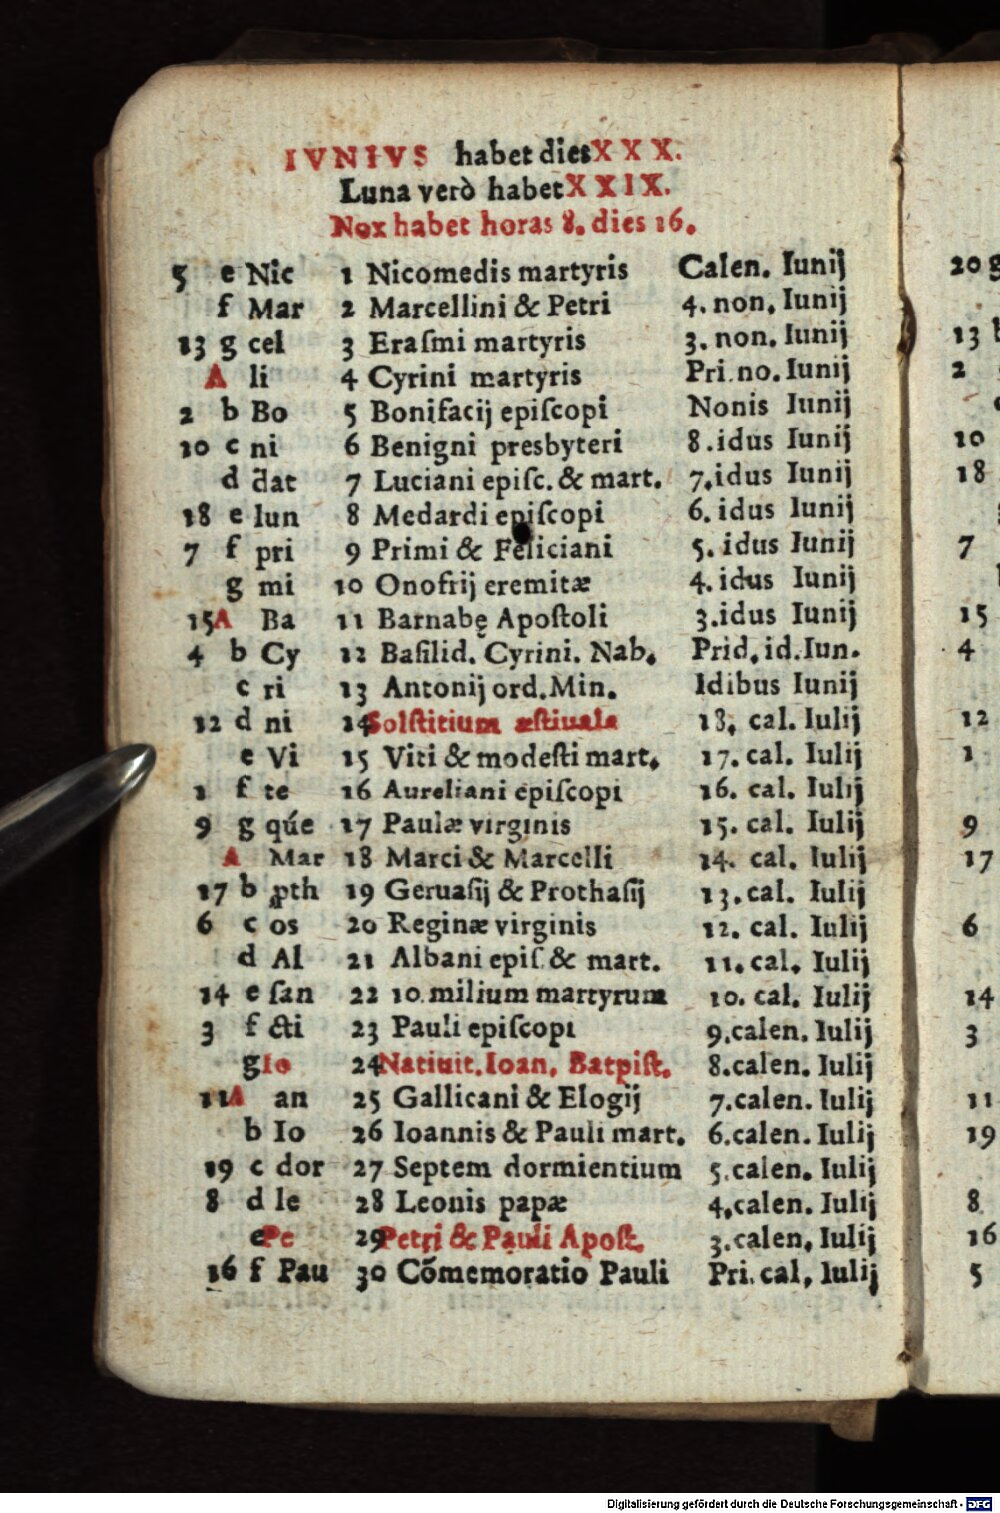 IVNIVS habet dies XXX.
Luna verò habet XXIX.
Nox habet horas 8. dies 16.
5 e Nic 1 Nicomedis martyris Calen. Iunij
f Mar 2 Marcellini & Petri 4. non. Iunij
13 g cel 3 Eraſmi martyris 3. non. Iunij
A li 4 Cyrini martyris Pri. no. Iunij
2 b Bo 5 Bonifacij epiſcopi Nonis Iunij
10 c ni 6 Benigni presbyteri 8. idus Iunij
d dat 7 Luciani epiſc. & mart. 7. idus Iunij
18 e lun 8 Medardi epiſcopi 6. idus Iunij
7 f pri 9 Primi & Feliciani 5. idus Iunij
g mi 10 Onofrij eremitæ 4. idus Iunij
15 A Ba 11 Barnabę Apoſtoli 3. idus Iunij
4 b Cy 12 Baſilid. Cyrini. Nab. Prid. id. Iun.
c ri 13 Antonij ord. Min. Idibus Iunij
12 d ni 14 Solſtitium æſtiuale 18. cal. Iulij
e Vi 15 Viti & modeſti mart. 17. cal. Iulij
1 f te 16 Aureliani epiſcopi 16. cal. Iulij
9 g qúe 17 Paulæ virginis 15. cal. Iulij
A Mar 18 Marci & Marcelli 14. cal. Iulij
17 b ꝓth 19 Geruaſij & Prothaſij 13. cal. Iulij
6 c os 20 Reginæ virginis 12. cal. Iulij
d Al 21 Albani epiſ. & mart. 11. cal. Iulij
14 e ſan 22 10. milium martyrum 10. cal. Iulij
3 f cti 23 Pauli epiſcopi 9. calen. Iulij
g Io 24 Natiuit. Ioan. Batpiſt. 8. calen. Iulij
11 A an 25 Gallicani & Elogij 7. calen. Iulij
b Io 26 Ioannis & Pauli mart. 6. calen. Iulij
19 c dor 27 Septem dormientium 5. calen. Iulij
8 d le 28 Leonis papæ 4. calen. Iulij
e Pe 29 Petri & Pauli Apoſt. 3. calen. Iulij
16 f Pau 30 Cõmemoratio Pauli Pri. cal. Iulij
20 g
13
2
10
18
7
15
4
12
1
9
17
6
14
3
11
19
8
16
5
Digitalisierung gefördert durch die Deutsche Forschungsgemeinschaft - DFG